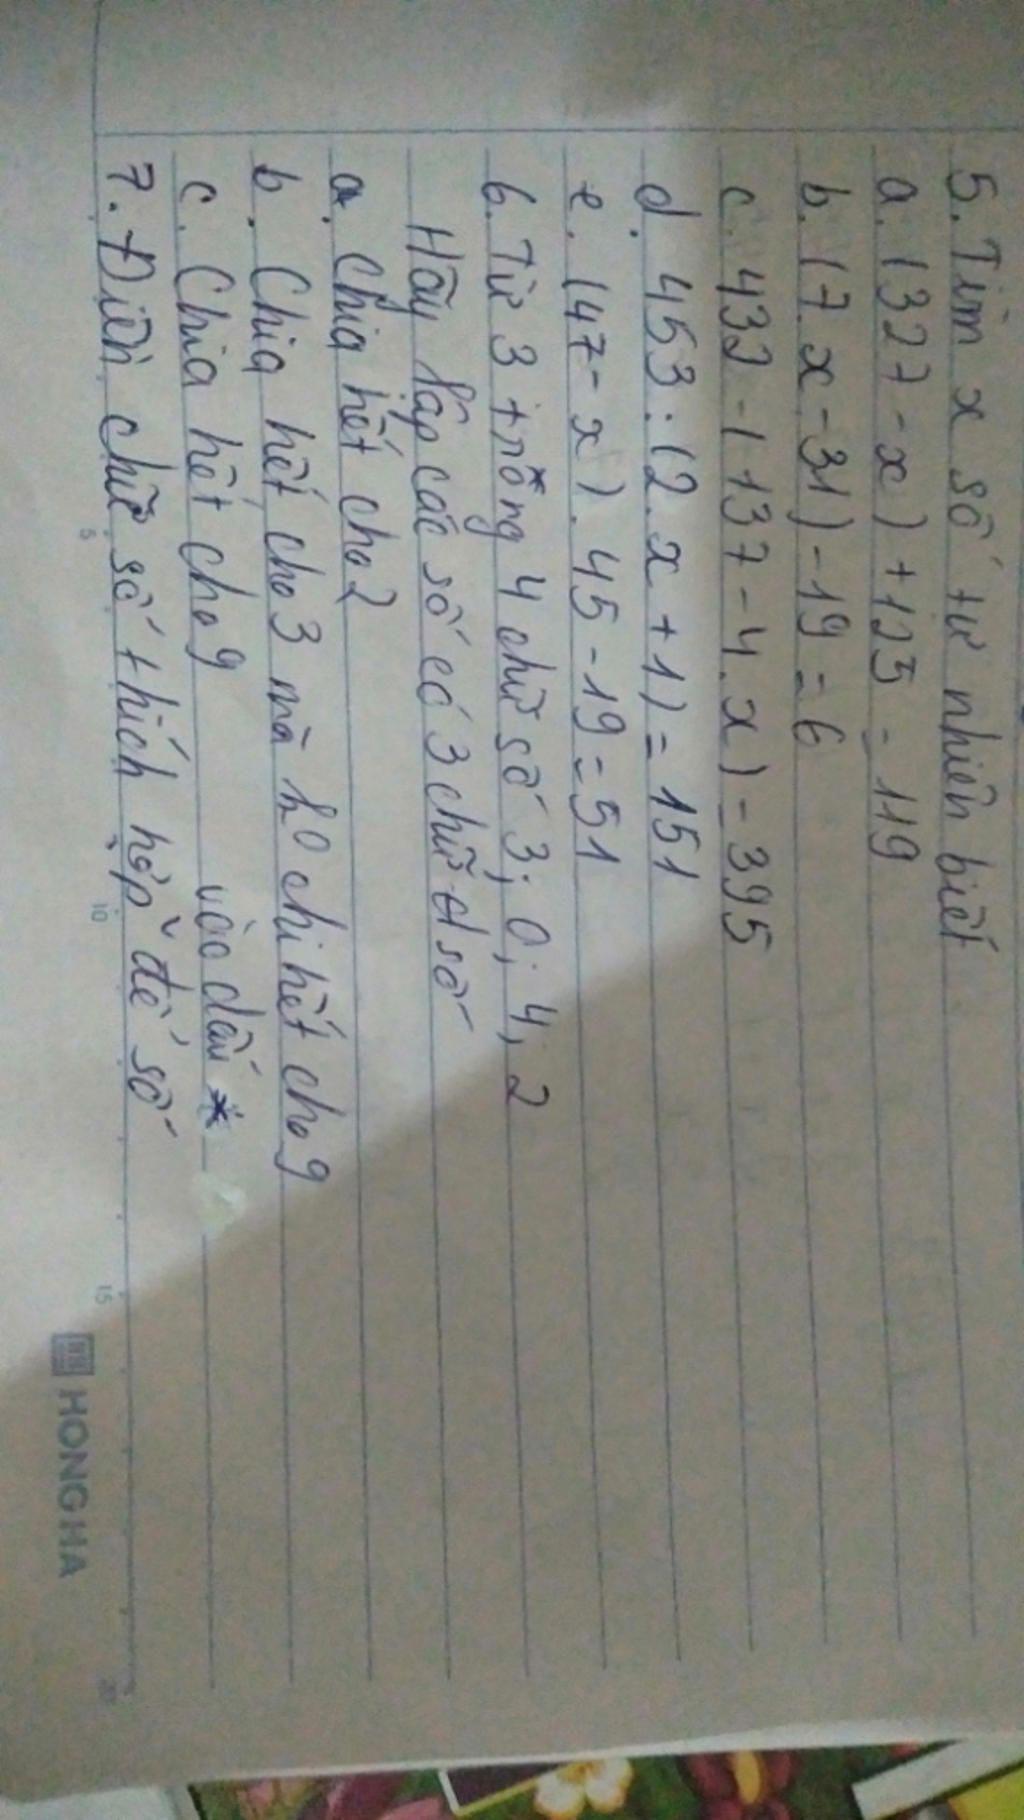 5. Tìm x số tự nhiên biết
a. (327 - x) + 125 = 119
b. (7. x - 31) - 19 = 6
c. 432 - (137 - 4. x) = 395
d. 453 : (2. x + 1) = 151
e. (47 - x). 45 - 19 = 51
6. Từ 3 trong 4 chữ số 3; 0; 4; 2
Hãy lập các số có 3 chữ số
a. Chia hết cho 2
b. Chia hết cho 3 mà ko chi hết cho 9
c. Chia hết cho 9
vào dấu *
7. Điền chữ số thích hợp để số
5 10 15 20
HONG HA